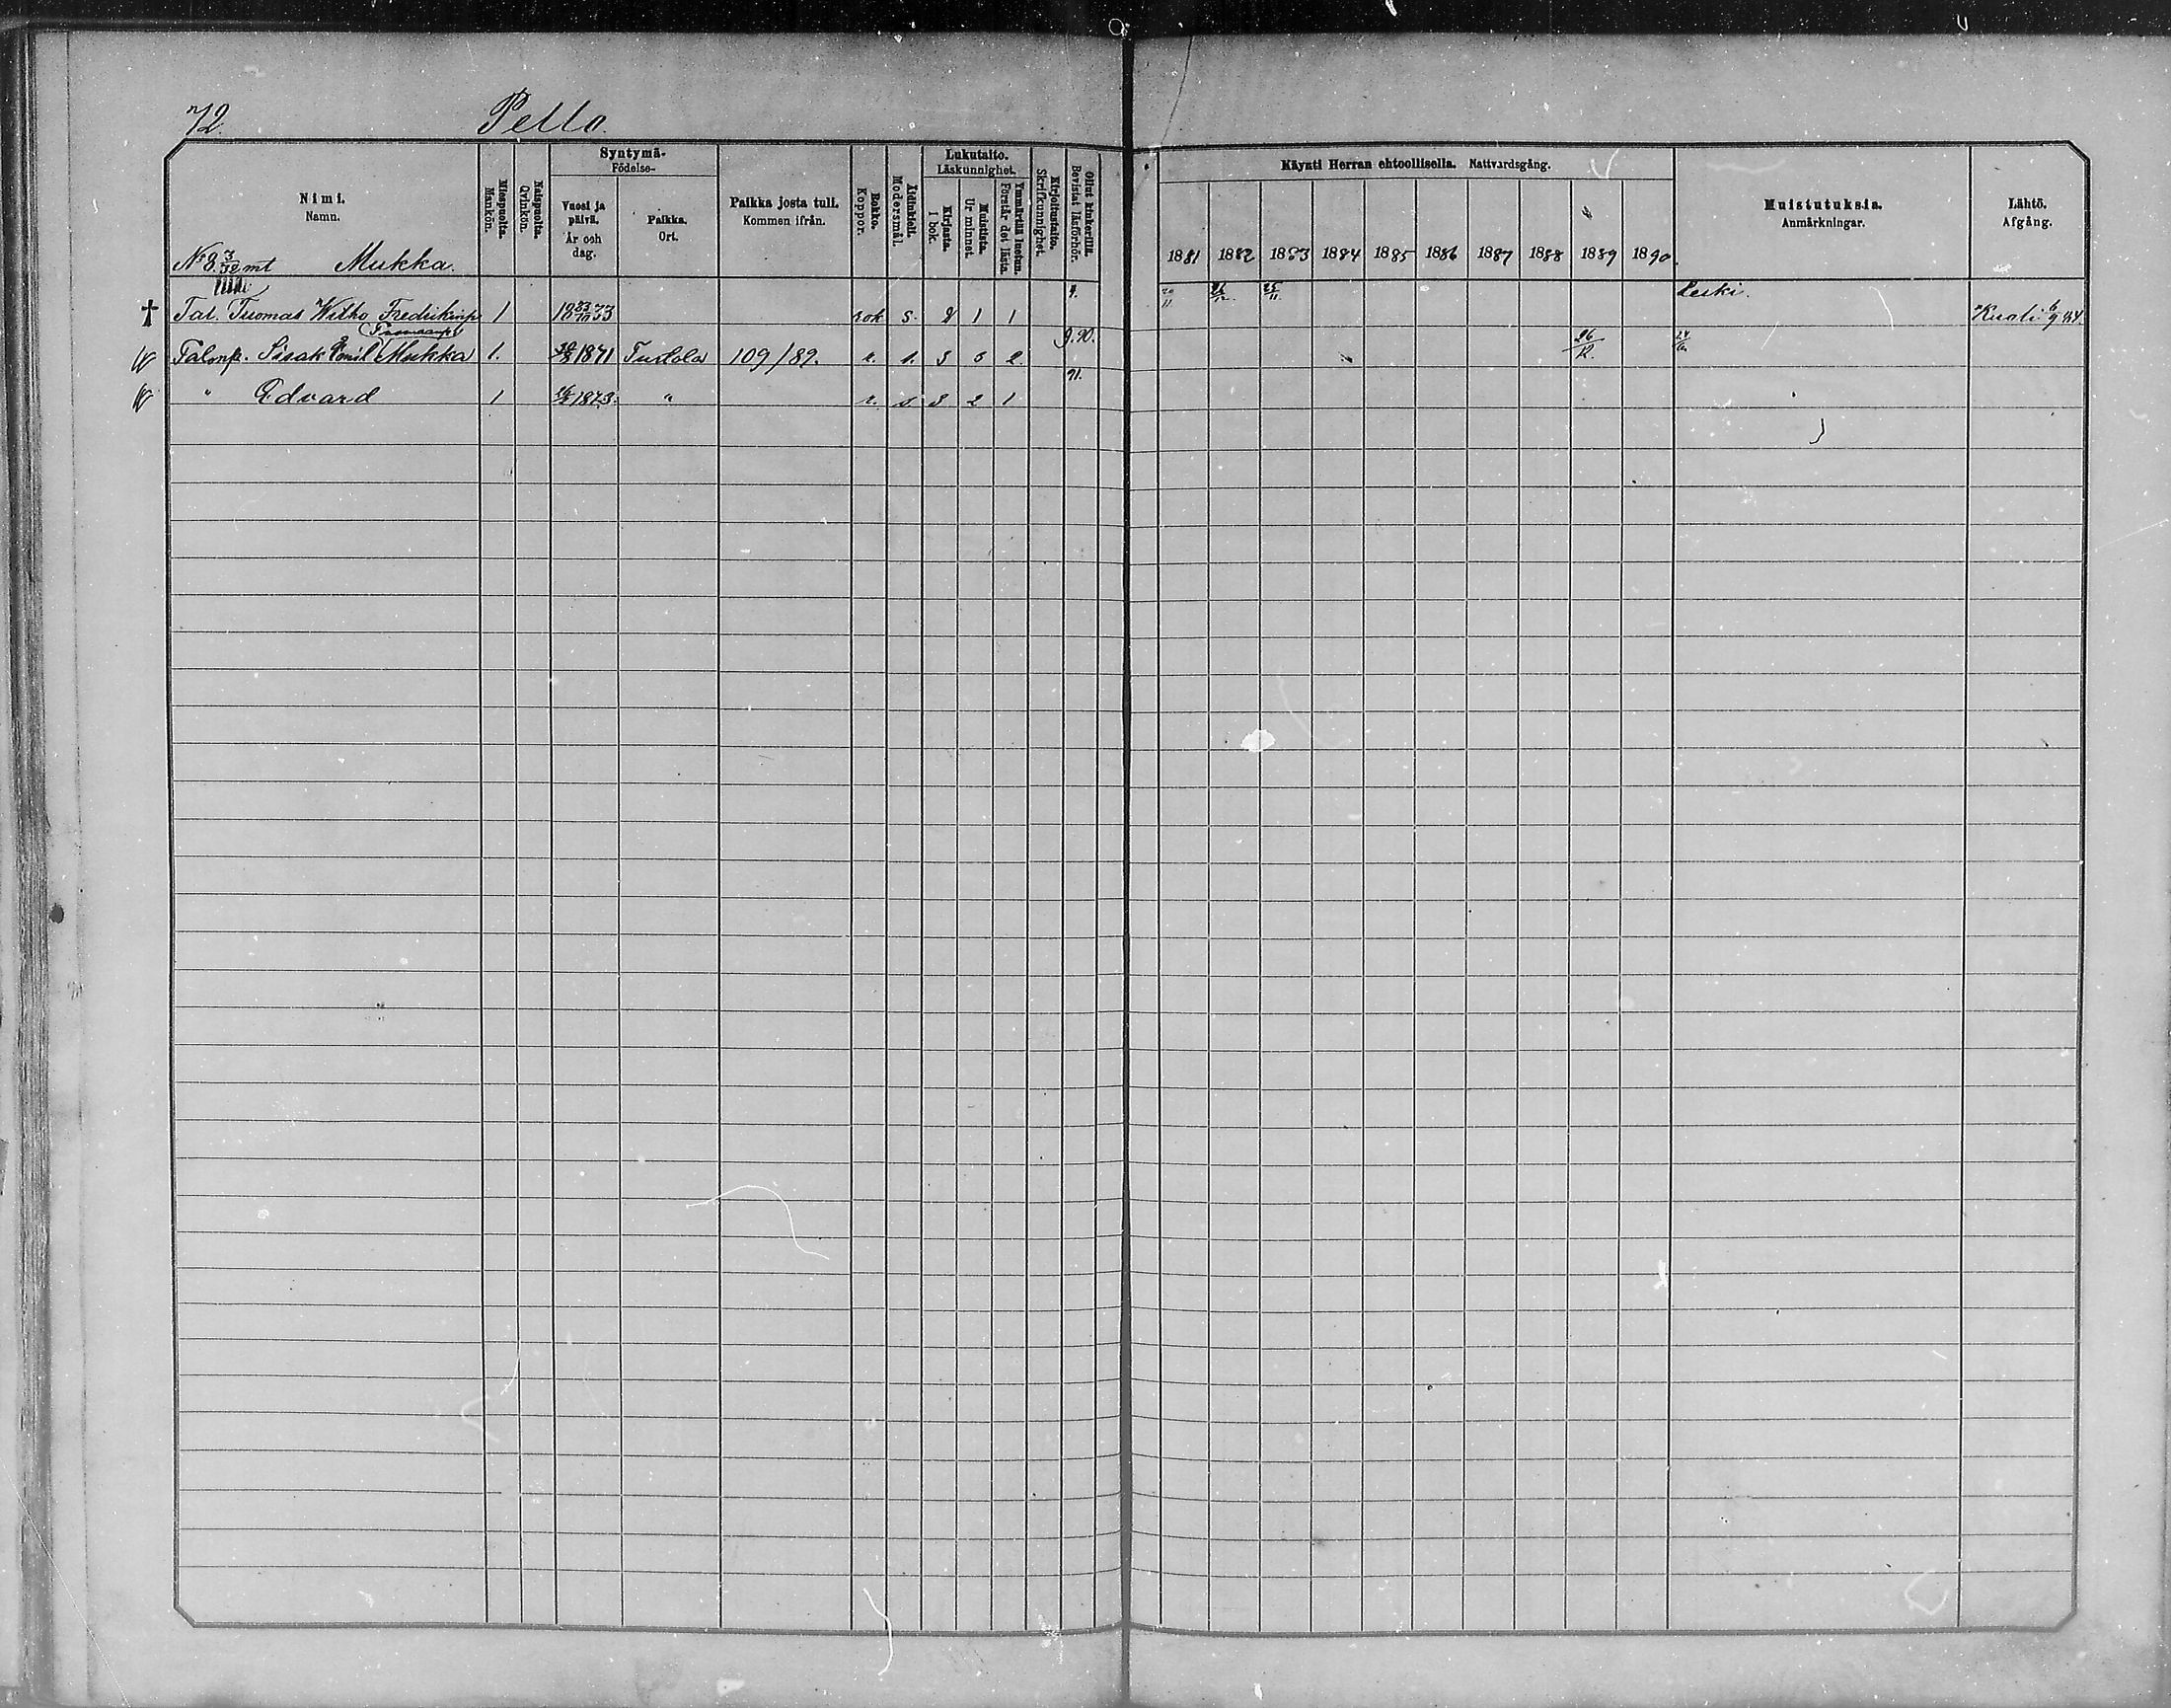 72. Pello.
Nimi. Namn.
Miespuolta. Mankön.
Naispuolta. Qvinkön.
Syntymä- Födelse-
Vuosi ja päivä. År och dag.
Paikka. Ort.
Paikka josta tuli. Kommen ifrån.
Rokko. Koppor.
Äidinkieli. Modersmål.
Lukutaito. Läskunnighet.
Kirjasta. I bok.
Muistista. Ur minnet.
Ymmärtää luetun. Förstår det lästa.
Kirjoitustaito. Skrifkunnighet.
Ollut kinkerillä. Bevistat läsförhör.
Käynti Herran ehtoollisella. Nattvardsgång.
1881 1882 1883 1884 1885 1886 1887 1888 1889 1890.
Muistutuksia. Anmärkningar.
Lähtö. Afgång.
No 8. 3/32 mt Mukka.
† Tal. Tuomas Wilho Fredrikinp 1 18 33 rok s. 2 1 1 Leski. Kuoli 6/9 84.
Talonp. Iisak Emil Mukka 1. 1871 Turtola 109/89. r. s. 3 2. 9.90. 26/12.
" Edvard 1 1873. " r. s 3 2 1 91.